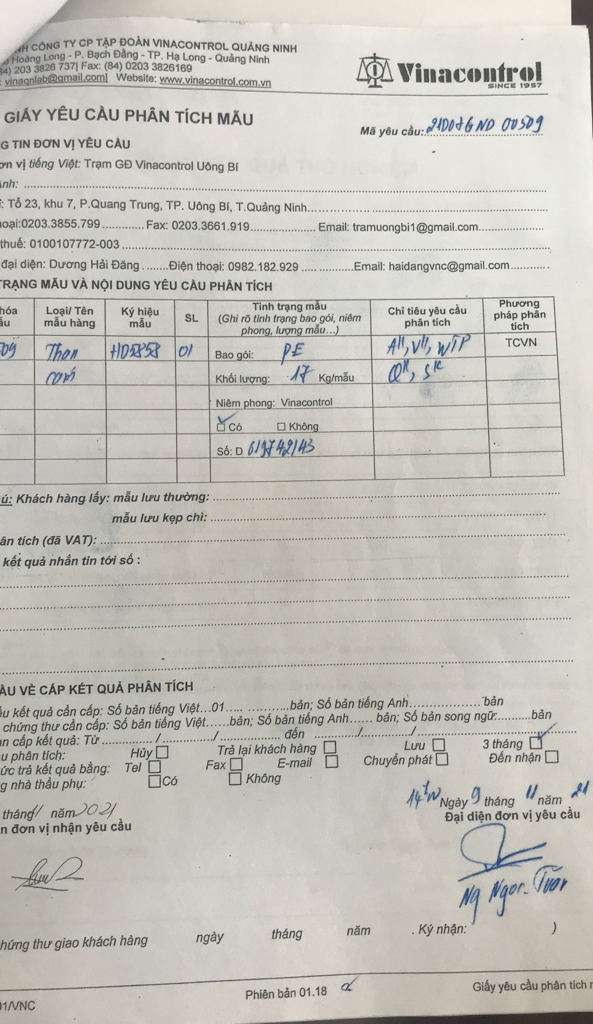 NH CÔNG TY CP TẬP ĐOÀN VINACONTROL QUẢNG NINH
Hoàng Long - P. Bạch Đằng - TP. Hạ Long - Quảng Ninh
84) 203 3826 737| Fax: (84) 0203 3826169
: vinaqnlab@gmail.com| Website: www.vinacontrol.com.vn
Vinacontrol
SINCE 1957
GIẤY YÊU CẦU PHÂN TÍCH MẪU
Mã yêu cầu: 21D07GND 00509
G TIN ĐƠN VỊ YÊU CẦU
ơn vị tiếng Việt: Trạm GĐ Vinacontrol Uông Bí
Anh: ..........
: Tổ 23, khu 7, P.Quang Trung, TP. Uông Bí, T.Quảng Ninh..........
hoại:0203.3855.799 .......... Fax: 0203.3661.919 .......... Email: tramuongbi1@gmail.com..........
thuế: 0100107772-003 ..........
đại diện: Dương Hải Đăng .......Điện thoại: 0982.182.929 ..........Email: haidangvnc@gmail.com..........
TRẠNG MẪU VÀ NỘI DUNG YÊU CẦU PHÂN TÍCH
hóa
ẫu
Loại/ Tên
mẫu hàng
Ký hiệu
mẫu
SL
Tình trạng mẫu
(Ghi rõ tình trạng bao gói, niêm
phong, lượng mẫu...)
Chỉ tiêu yêu cầu
phân tích
Phương
pháp phân
tích
509 Than HD5858 01 Bao gói: PE TCVN
cám Khối lượng: 17 Kg/mẫu
Niêm phong: Vinacontrol
☑ Có ☐ Không
Số: D 619742143
ú: Khách hàng lấy: mẫu lưu thường: ..........
mẫu lưu kẹp chì: ..........
ân tích (đã VAT): ..........
kết quả nhắn tin tới số :
ẦU VỀ CẤP KẾT QUẢ PHÂN TÍCH
ẫu kết quả cần cấp: Số bản tiếng Việt...01..... ..........bản; Số bản tiếng Anh.......... bản
chứng thư cần cấp: Số bản tiếng Việt......bản; Số bản tiếng Anh...... bản; Số bản song ngữ..........bản
n cấp kết quả: Từ ........../........../.......... đến ........../........../..........
u phân tích: Hủy ☐ Trả lại khách hàng ☐ Lưu ☐ 3 tháng ☑
ức trả kết quả bằng: Tel ☐ Fax ☐ E-mail ☐ Chuyển phát ☐ Đến nhận ☐
g nhà thầu phụ: ☐ Có ☐ Không
Ngày 9 tháng 11 năm 21
tháng 11 năm 2021
Đại diện đơn vị yêu cầu
n đơn vị nhận yêu cầu
Ng Ngọc
hứng thư giao khách hàng ngày tháng năm . Ký nhận: )
Phiên bản 01.18
Giấy yêu cầu phân tích
01/VNC